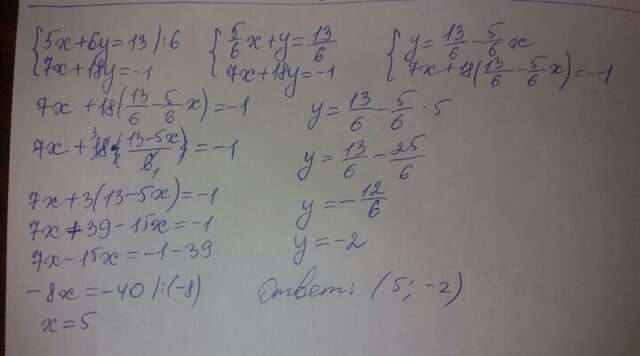 {5x+6y=13 |:6
{7x+18y=-1
{5/6x+y=13/6
{7x+18y=-1
{y=13/6-5/6x
{7x+18(13/6-5/6x)=-1
7x+18(13/6-5/6x)=-1
7x+18·(13-5x/6)=-1
7x+3(13-5x)=-1
7x+39-15x=-1
7x-15x=-1-39
-8x=-40 |:(-8)
x=5
y=13/6-5/6·5
y=13/6-25/6
y=-12/6
y=-2
Ответ: (5; -2)